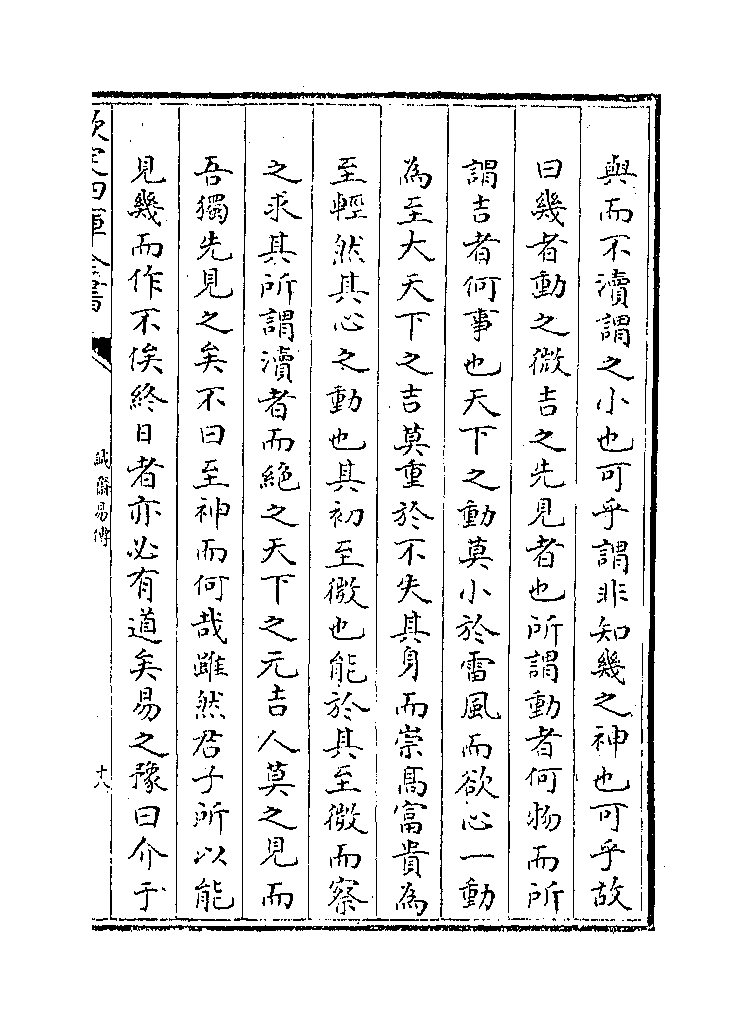 與而不瀆謂之小也可乎謂非知幾之神也可乎故
曰幾者動之微吉之先見者也所謂動者何物而所
謂吉者何事也天下之動莫小於雷風而欲心一動
為至大天下之吉莫重於不失其身而崇髙富貴為
至輕然其心之動也其初至微也能於其至微而察
之求其所謂瀆者而絶之天下之元吉人莫之見而
吾獨先見之矣不曰至神而何哉雖然君子所以能
見幾而作不俟終日者亦必有道矣易之豫曰介于
欽定四庫全書
誠齋易傳
十八